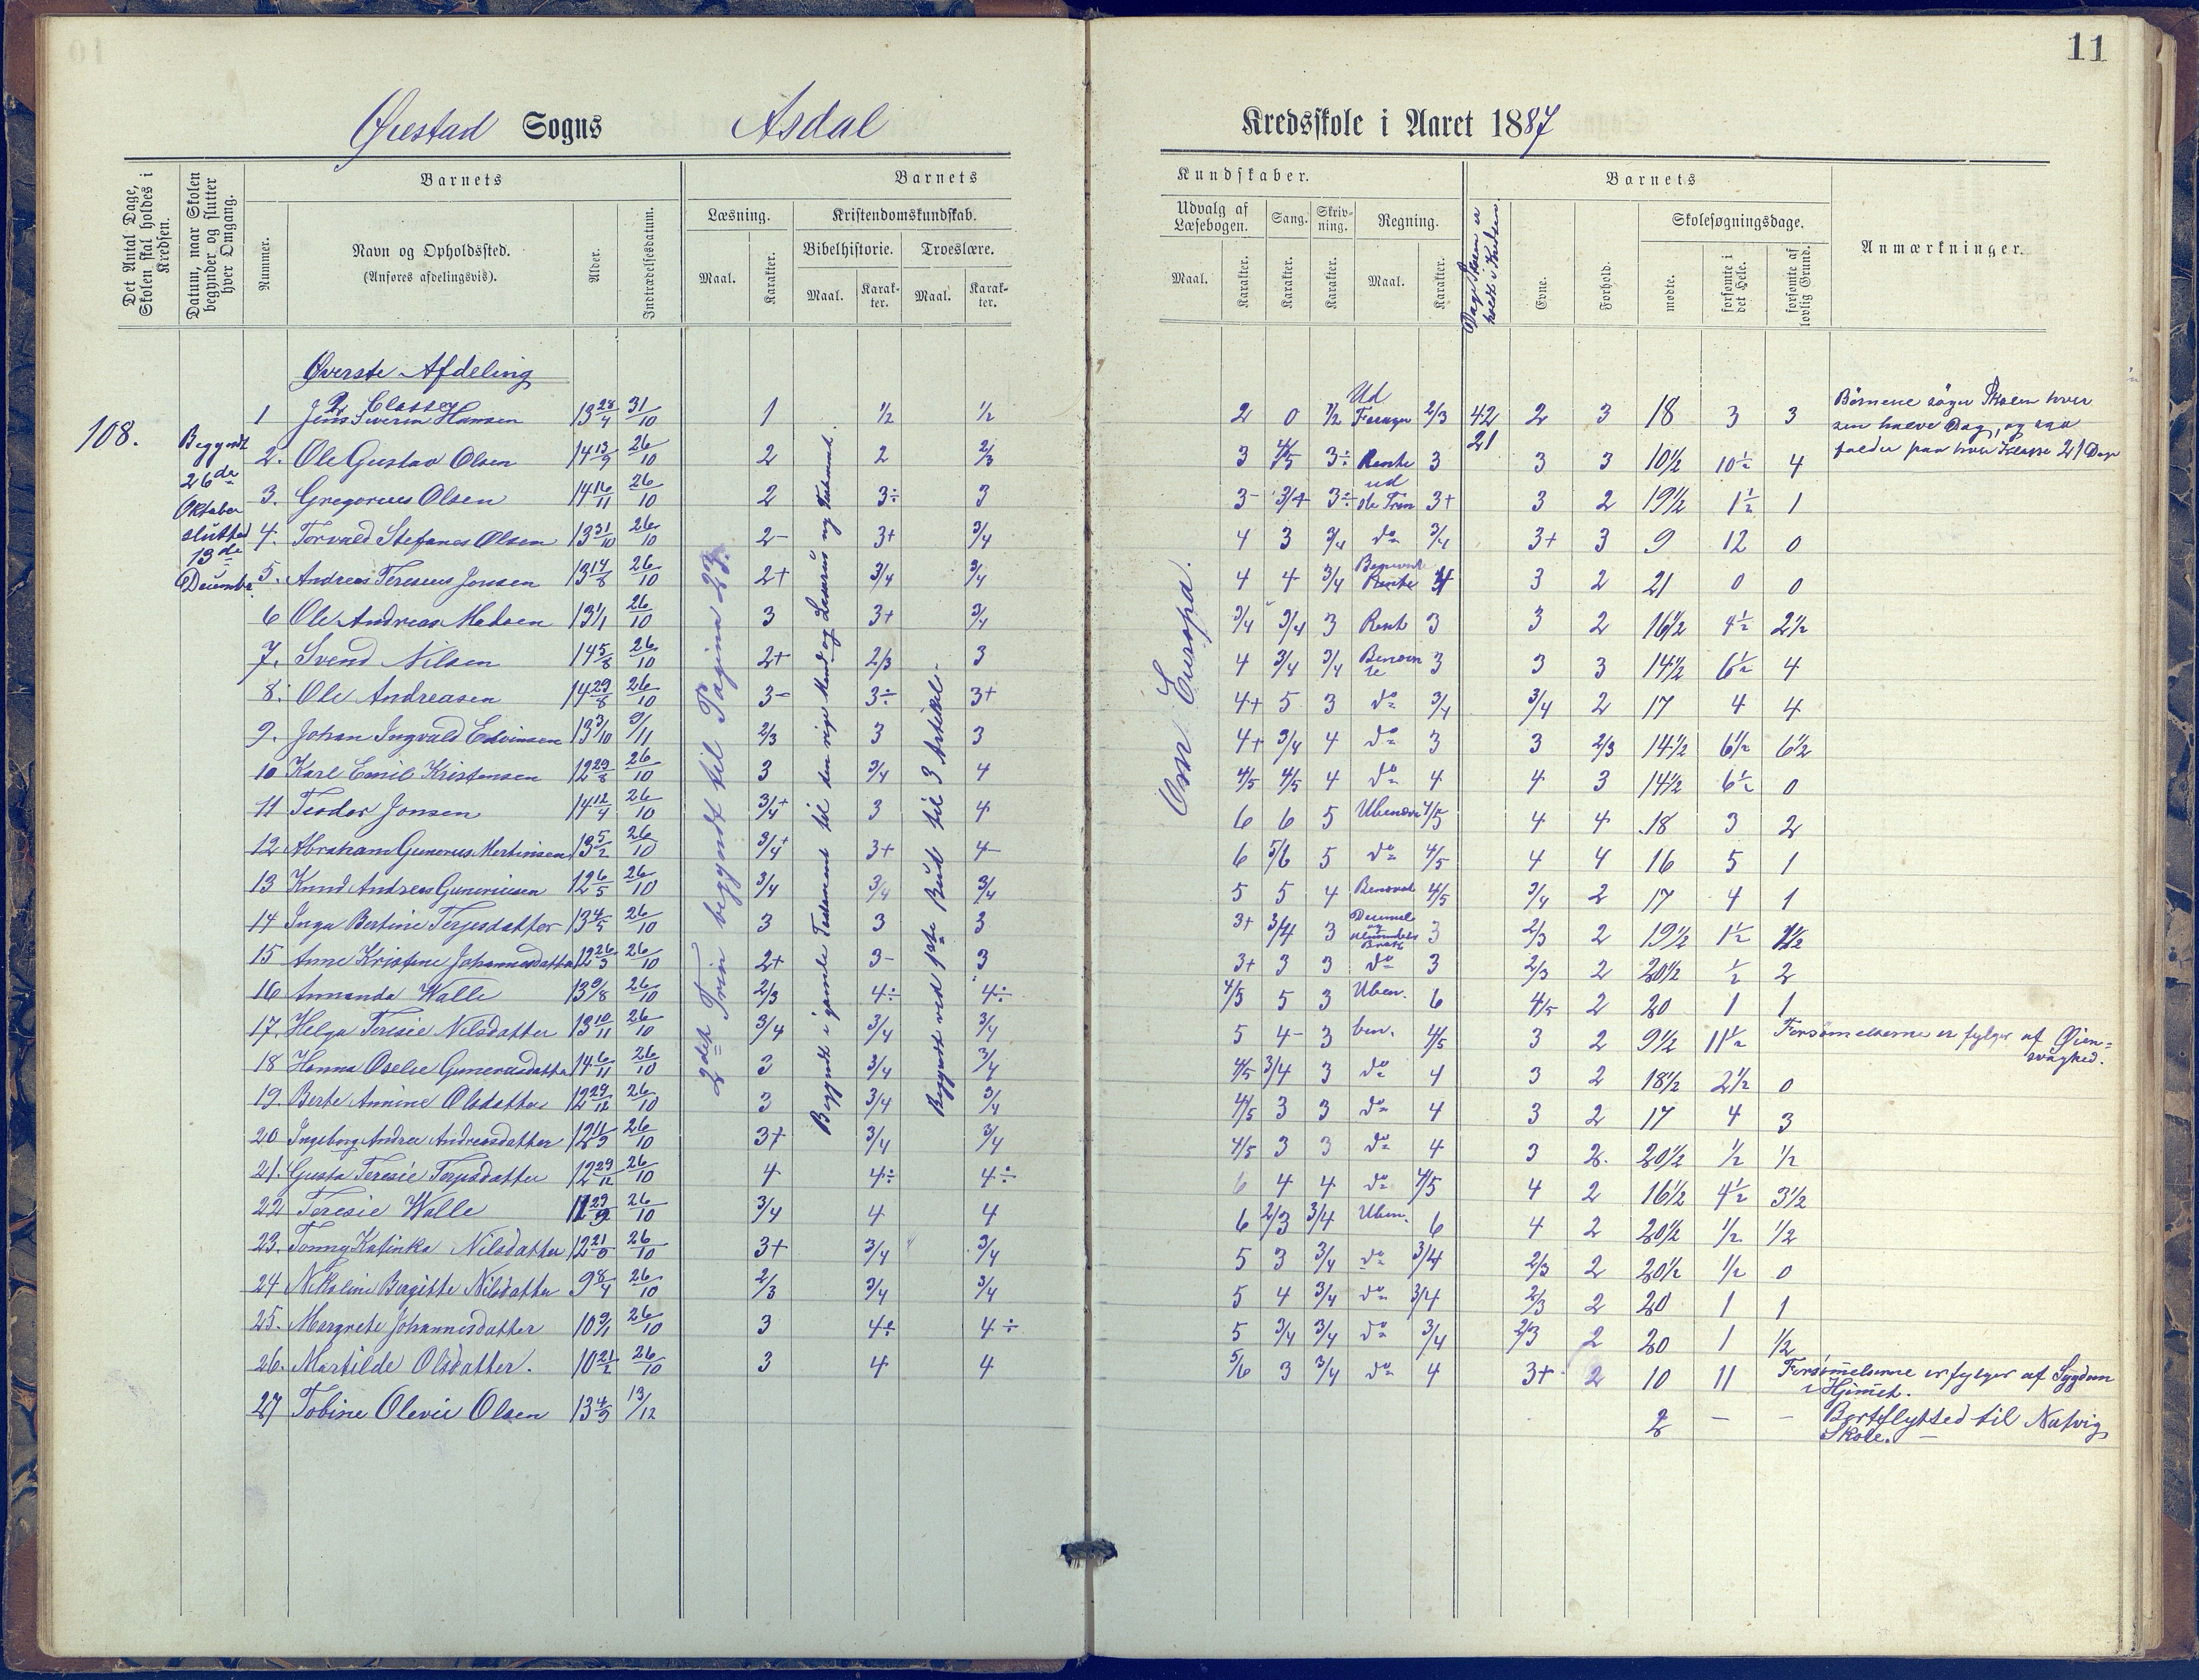 11
Øiestad Sogns Asdal Kredsskole i Aaret 1887
Det Antal Dage, Skolen skal holdes i Kredsen.
Datum, naar Skolen begynder og slutter hver Omgang.
Barnets
Nummer.
Navn og Opholdssted.
(Anføres afdelingsvis).
Alder.
Indtrædelsesdatum.
Barnets Kundskaber.
Læsning.
Maal. Karakter.
Kristendomskundskab.
Bibelhistorie. Troeslære.
Maal. Karakter. Maal. Karakter.
Udvalg af Læsebogen. Sang. Skrivning. Regning.
Maal. Karakter. Karakter. Karakter. Maal. Karakter.
Dage Skolen er holdt i Kredsen.
Barnets
Evne. Forhold.
Skolesøgningsdage.
mødte. forsømte i det Hele. forsømte af lovlig Grund.
Anmærkninger.
108.
Begyndt
26de
Oktober
slutted
13de
Decembr.
2det Trin begyndt til Pagina 23.
Begyndt i gamle Testament til den rige Mand og Lasarus ny Testament.
Begyndt ved 1ste Bud til 3 Artikel.
Om Europa.
Øverste Afdeling
2 Classe
1 Jens Severin Hansen 13 28/4 31/10 1 1/2 1/2 2 0 1/2 Ud 2/3 42 2 3 18 3 3 Børnene søger Skolen hver
21 sin halve Dag, og saa
falder paa hver Klasse 21 Dage
2. Ole Gustav Olsen 14 13/9 26/10 2 2 2/3 3 4/5 3÷ Rente 3 3 3 10½ 10½ 4
3. Gregorius Olsen 14 16/11 26/10 2 3÷ 3 3- 3/4 3÷ ud 3+ 3 2 19½ 1½ 1
4. Torvald Stefanes Olsen 13 31/10 26/10 2- 3+ 3/4 4 3 3/4 do 3/4 3+ 3 9 12 0
5. Andreas Teresius Jonsen 13 14/8 26/10 2+ 3/4 3/4 4 4 3/4 Rente 4 3 2 21 0 0
6 Ole Andreas Madsen 13 1/1 26/10 3 3+ 3/4 3/4 3/4 3 Rente 3 3 2 16½ 4½ 2½
7. Svend Nilsen 14 5/8 26/10 2+ 2/3 3 4 3/4 3/4 3 3 3 14½ 6½ 4
8. Ole Andreasen 14 29/8 26/10 3- 3÷ 3+ 4+ 5 3 do 3/4 3/4 2 17 4 4
9. Johan Ingvald Edvinsen 13 3/10 9/11 2/3 3 3 4+ 3/4 4 do 3 3 2/3 14½ 6½ 6½
10 Karl Emil Kristensen 12 29/8 26/10 3 3/4 4 4/5 4/5 4 do 4 4 3 14½ 6½ 0
11 Teodor Jonsen 14 12/4 26/10 3/4+ 3 4 6 6 5 4/5 4 4 18 3 2
12 Abraham Gunerus Martinsen 13 5/2 26/10 3/4+ 3+ 4- 6 5/6 5 do 4/5 4 4 16 5 1
13 Knud Andreas Gunerius­sen 12 6/5 26/10 3/4 3/4 3/4 5 5 4 4/5 3/4 2 17 4 1
14 Inga Bertine Terjesdatter 13 4/5 26/10 3 3 3 3+ 3/4 3 3 2/3 2 19½ 1½ 1½
15 Anne Kristine Johannesdatter 12 26/3 26/10 2+ 3- 3 3+ 3 3 do 3 2/3 2 20½ ½ 2
16 Annanda Walle 13 9/8 26/10 2/3 4÷ 4÷ 4/5 5 3 Uben. 6 4/5 2 20 1 1
17. Helga Teresie Nilsdatter 13 10/11 26/10 3/4 3/4 3/4 5 4- 3 ben. 4/5 3 2 9½ 11½ Forsømelserne er følger af Øien=
svaghed.
18 Hanna Oselie Guneriusdatter 14 6/11 26/10 3 3/4 3/4 4/5 3/4 3 do 4 3 2 18½ 2½ 0
19. Berte Annine Olsdatter 12 29/12 26/10 3 3/4 3/4 4/5 3 3 do 4 3 2 17 4 3
20 Ingeborg Andrea Andreasdatter 12 11/9 26/10 3+ 3/4 3/4 4/5 3 3 do 4 3 2. 20½ ½ ½
21. Gusta Teresie Terjesdatter 12 29/12 26/10 4 4÷ 4÷ 6 4 4 do 4/5 4 2 16½ 4½ 3½
22 Teresie Walle 11 29/9 26/10 3/4 4 4 6 2/3 3/4 Uben. 6 4 2 20½ ½ ½
23. Tonny Katinka Nilsdatter 12 21/9 26/10 3+ 3/4 3/4 5 3 3/4 do 3/4 2/3 2 20½ ½ 0
24 Nikoline Bergitte Nilsdatter 9 8/4 26/10 2/3 3/4 3/4 5 4 3/4 do 3/4 2/3 2 20 1 1
25. Margrete Johannesdatter 10 9/1 26/10 3 4÷ 4÷ 5 3/4 3/4 do 3/4 2/3 2 20 1 ½
26. Martilde Olsdatter. 10 21/2 26/10 3 4 4 5/6 3 3/4 do 4 3+ 2 10 11 Forsømelserne er følger af Sygdom
i Hjemmet.
27 Tobine Olevie Olsen 13 4/9 13/12 2 — — Bortflytted til Natvig
Skole.